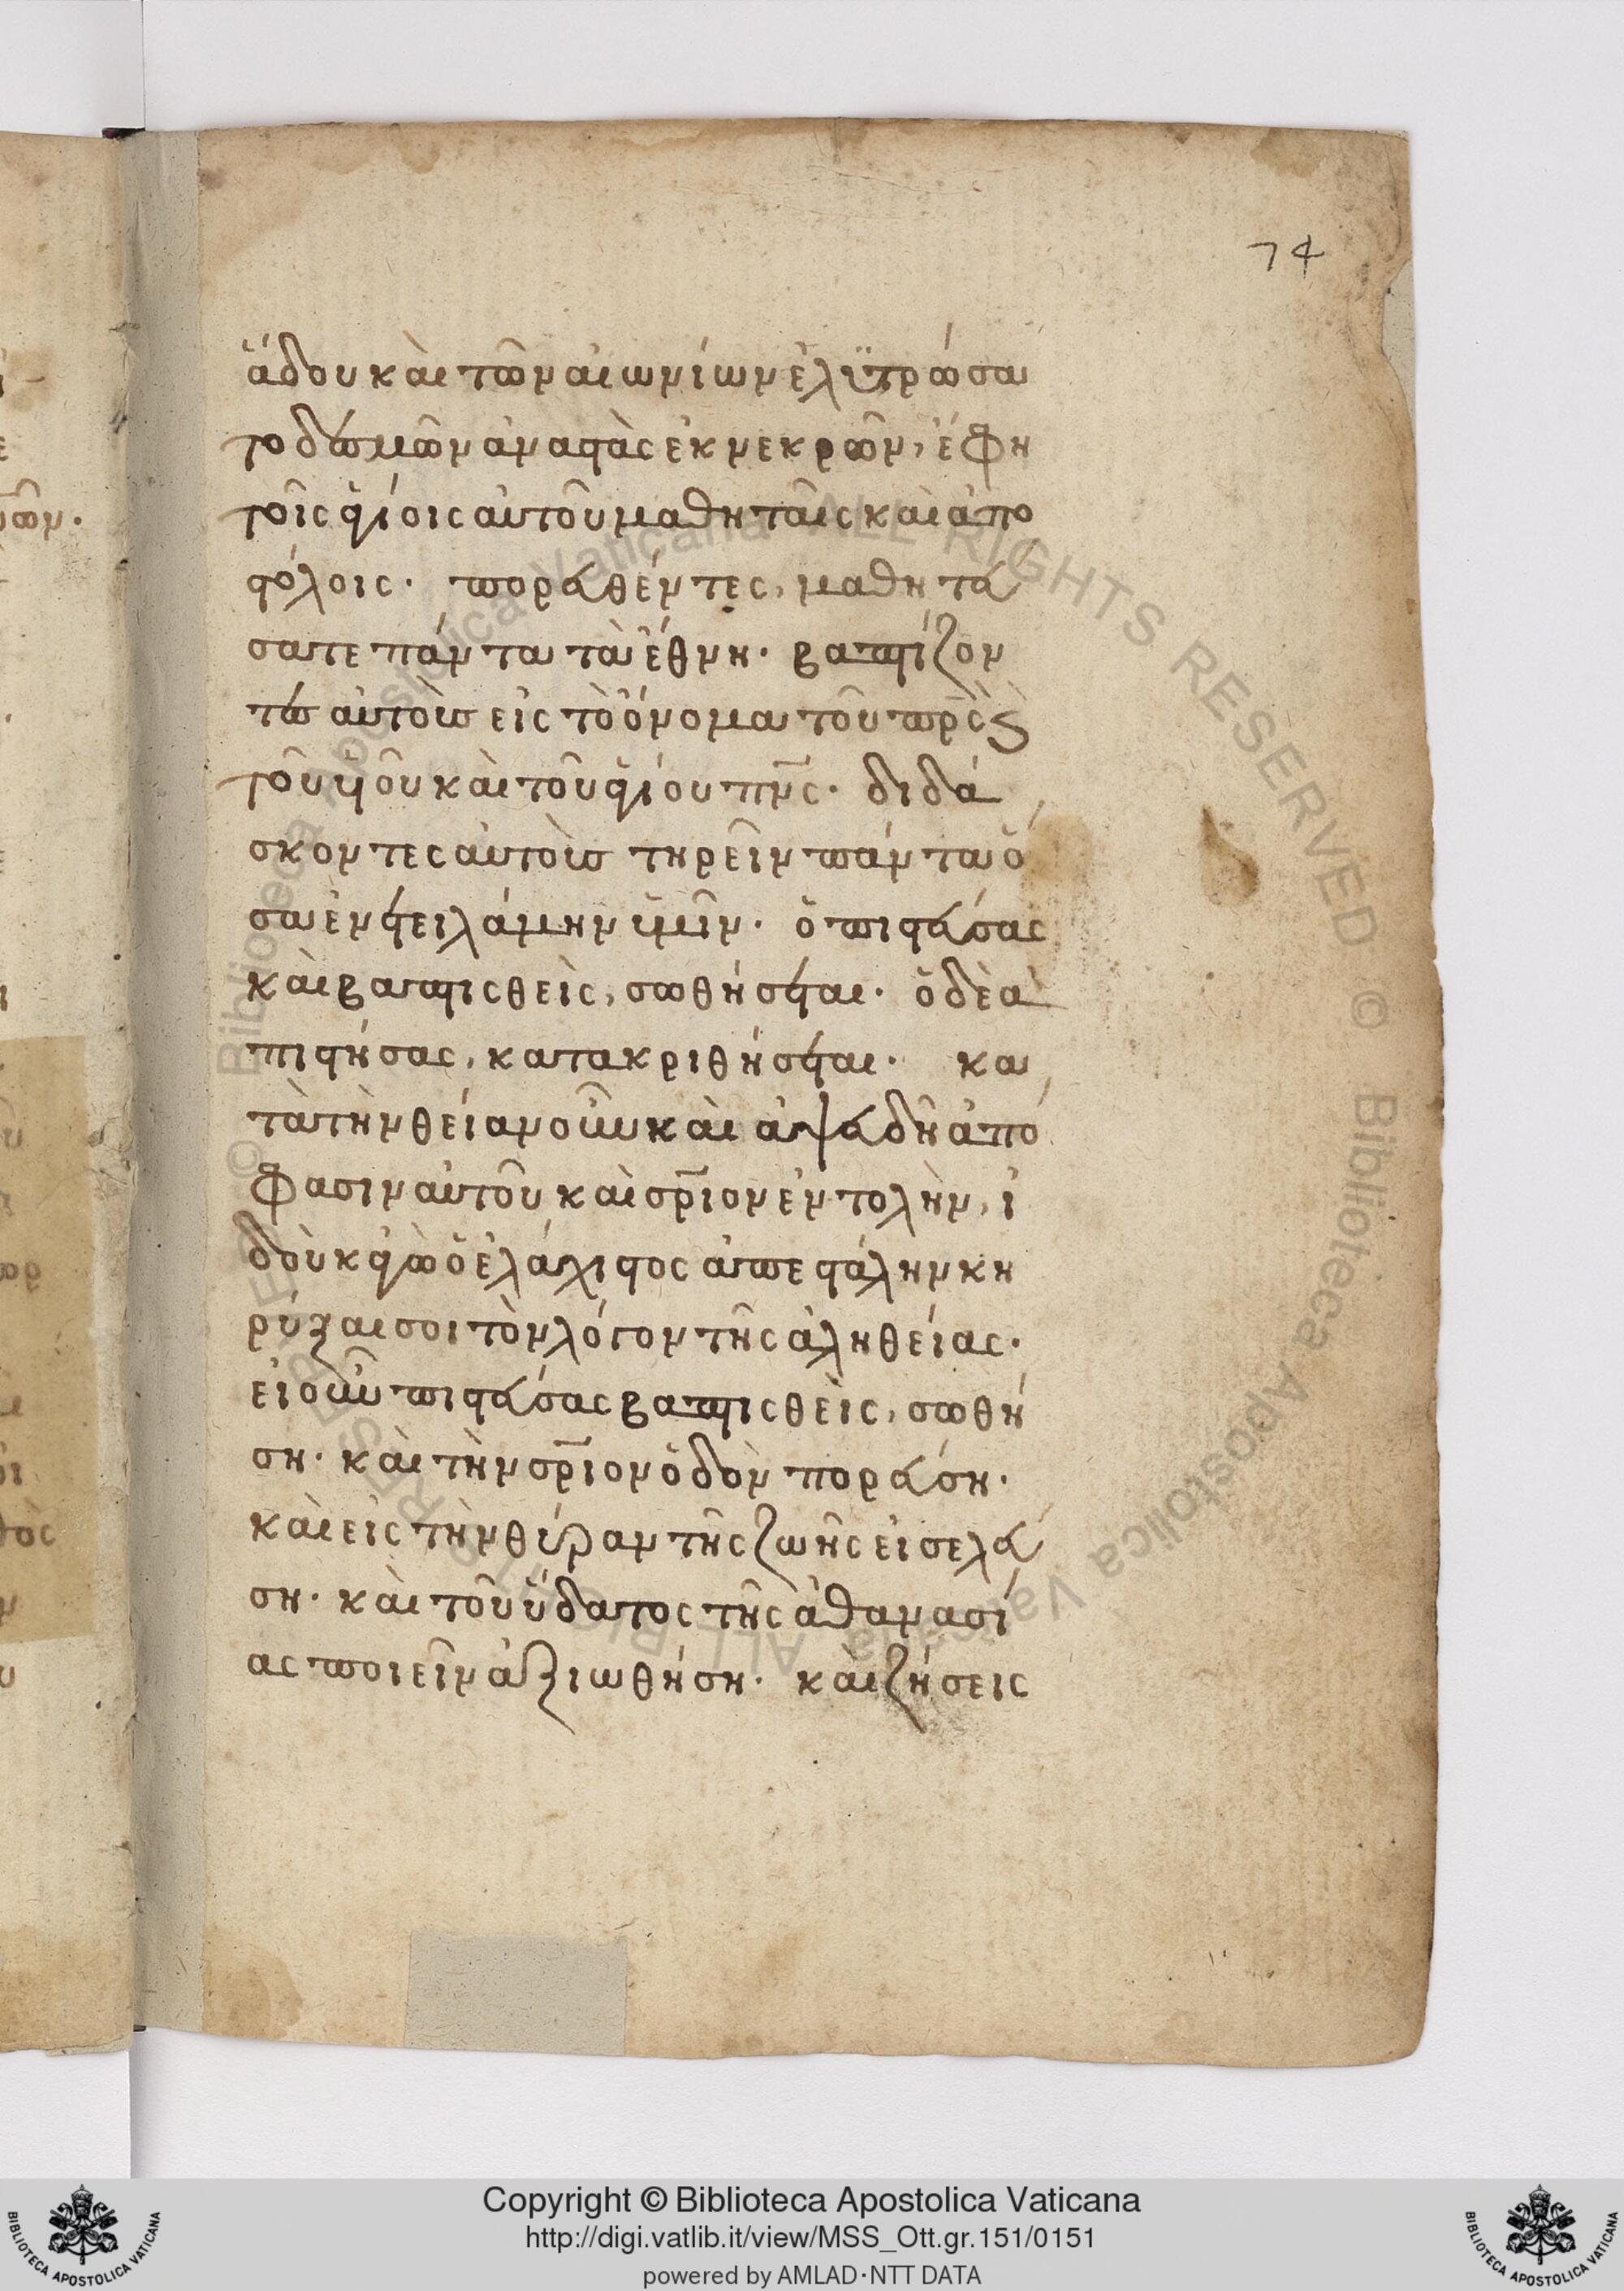 74
ἅδου καὶ τῶν αἰωνίων ἐλυτρώσα
το δεσμῶν ἀναστὰς ἐκ νεκρῶν, ἔφη
τοῖς ἁγίοις αὐτοῦ μαθηταῖς καὶ ἀπο
στόλοις· πορευθέντες, μαθητεύ
σατε πάντα τὰ ἔθνη· βαπτίζον
τες αὐτοὺς εἰς τὸ ὄνομα τοῦ πρς ϗ
τοῦ υἱοῦ καὶ τοῦ ἁγίου πνς· διδά
σκοντες αὐτοὺς τηρεῖν πάντα ὅ
σα ἐνετειλάμην ὑμῖν· ὁ πιστεύσας
καὶ βαπτισθεὶς, σωθήσεται· ὁ δὲ ἀ
πιστήσας, κατακριθήσεται· κα
τὰ τὴν θείαν οὖν καὶ ἀψευδῆ ἀπό
φασιν αὐτοῦ καὶ σριον ἐντολὴν, ἰ
δοὺ κἀγὼ ὁ ἐλάχιστος ἀπεστάλην κη
ρύξαι σοι τὸν λόγον τῆς ἀληθείας·
εἰ οὖν πιστεύσας βαπτισθεὶς, σωθή
ση· καὶ τὴν σριον ὁδὸν πορεύση·
καὶ εἰς τὴν θύραν τῆς ζωῆς εἰσελεύ
ση· καὶ τοῦ ὕδατος τῆς ἀθανασί
ας ποιεῖν ἀξιωθήση· καὶ ζήσεις
© Biblioteca Apostolica Vaticana ALL RIGHTS RESERVED
Copyright © Biblioteca Apostolica Vaticana
http://digi.vatlib.it/view/MSS_Ott.gr.151/0151
powered by AMLAD·NTT DATA
BIBLIOTECA APOSTOLICA VATICANA
BIBLIOTECA APOSTOLICA VATICANA